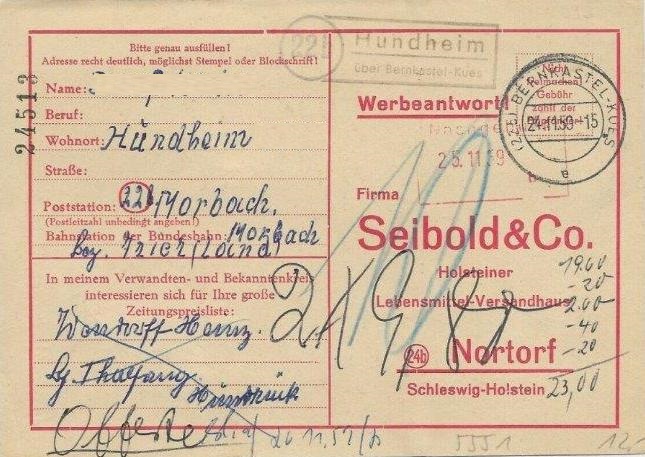 Bitte genau ausfüllen!
Adresse recht deutlich, möglichst Stempel oder Blockschrift!
24513
Name:
Beruf:
Wohnort: Hundheim
Straße:
Poststation: 22b Morbach.
(Postleitzahl unbedingt angeben!)
Bahnstation der Bundesbahn: Morbach
Bez. Trier (Land)
In meinem Verwandten- und Bekanntenkreis
interessieren sich für Ihre große
Zeitungspreisliste:
Heinz.
Thalfang
Hunsrück
Offerte
22b
Hundheim
über Bernkastel-Kues
BERNKASTEL-KUES
24.11.59-15
a
Nicht
freimachen
Gebühr
zahlt der
Empfänger
Werbeantwort
25.11.59
10
Firma
Seibold & Co.
Holsteiner
Lebensmittel-Versandhaus
24b Nortorf
Schleswig-Holstein
19.60
-20
2.00
-40
-20
23,00
5551
12,-